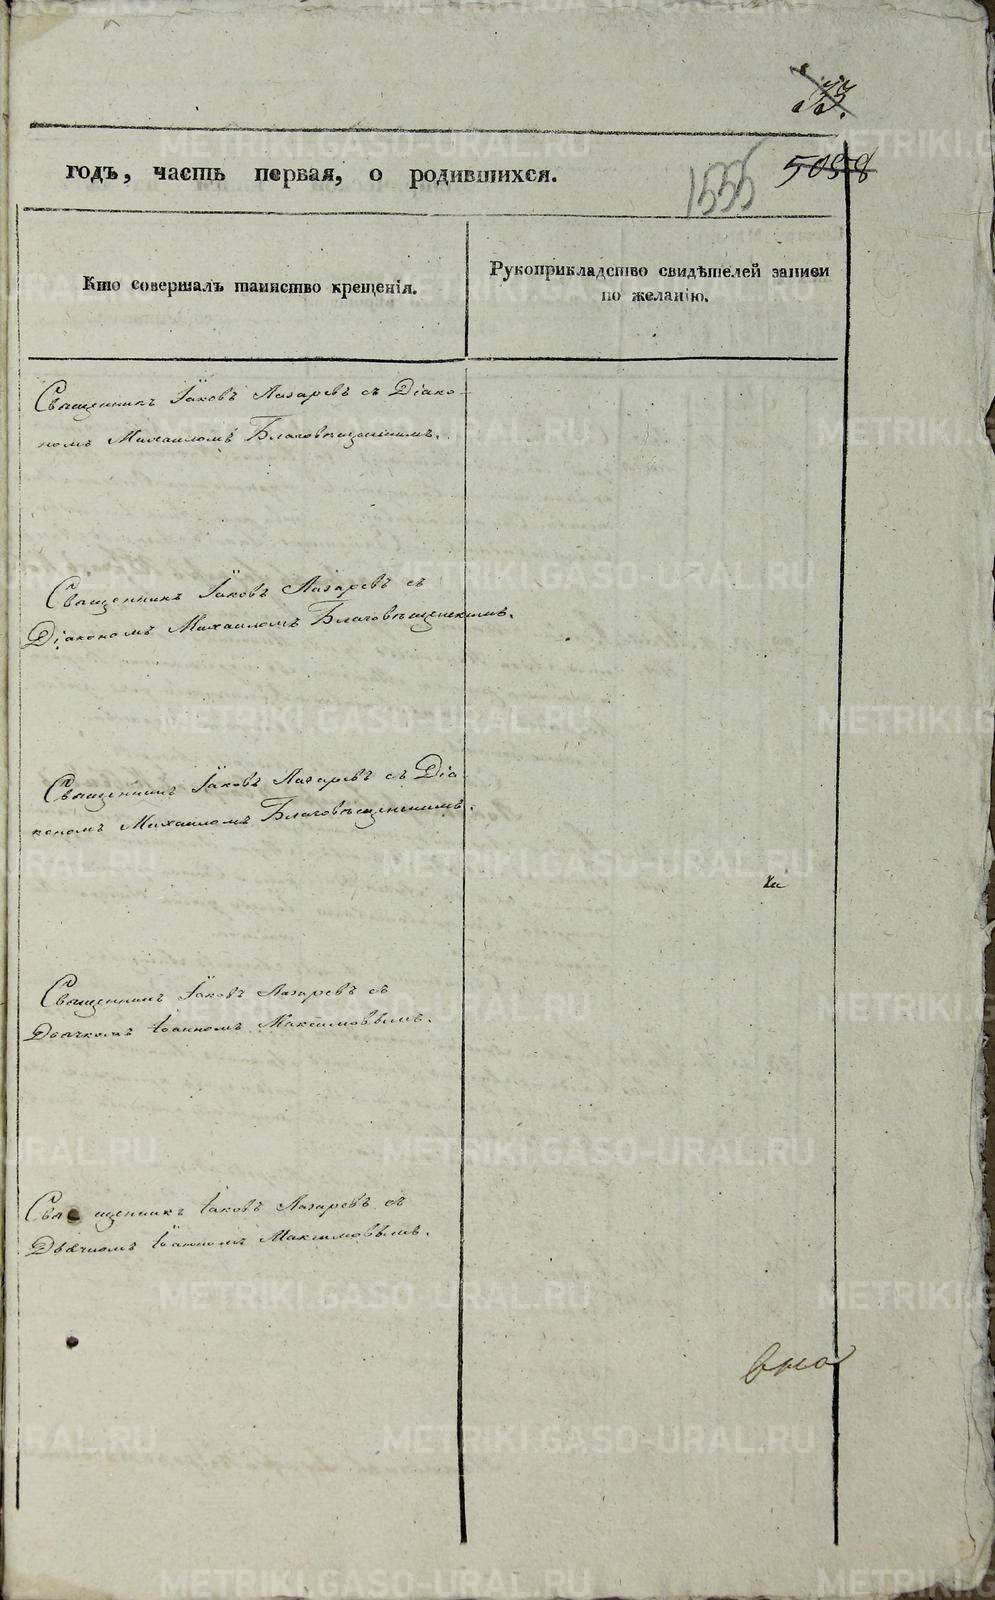 33.
годъ, часть первая, о родившихся.
1555
5058
Кто совершалъ таинство крещенія.
Рукоприкладство свидѣтелей записи
по желанію.
Священникъ Іаковъ Лазаревъ съ Діако-
номъ Михаиломъ Благовѣщенскимъ.
Священникъ Іаковъ Лазаревъ съ
Діакономъ Михаиломъ Благовѣщенскимъ.
Священникъ Іаковъ Лазаревъ съ Діа
кономъ Михаиломъ Благовѣщенскимъ.
Священникъ Іаковъ Лазаревъ съ
Дьячкомъ Іоанномъ Максимовымъ.
Священникъ Іаковъ Лазаревъ съ
Дьячкомъ Іоанномъ Максимовымъ.
METRIKI.GASO-URAL.RU